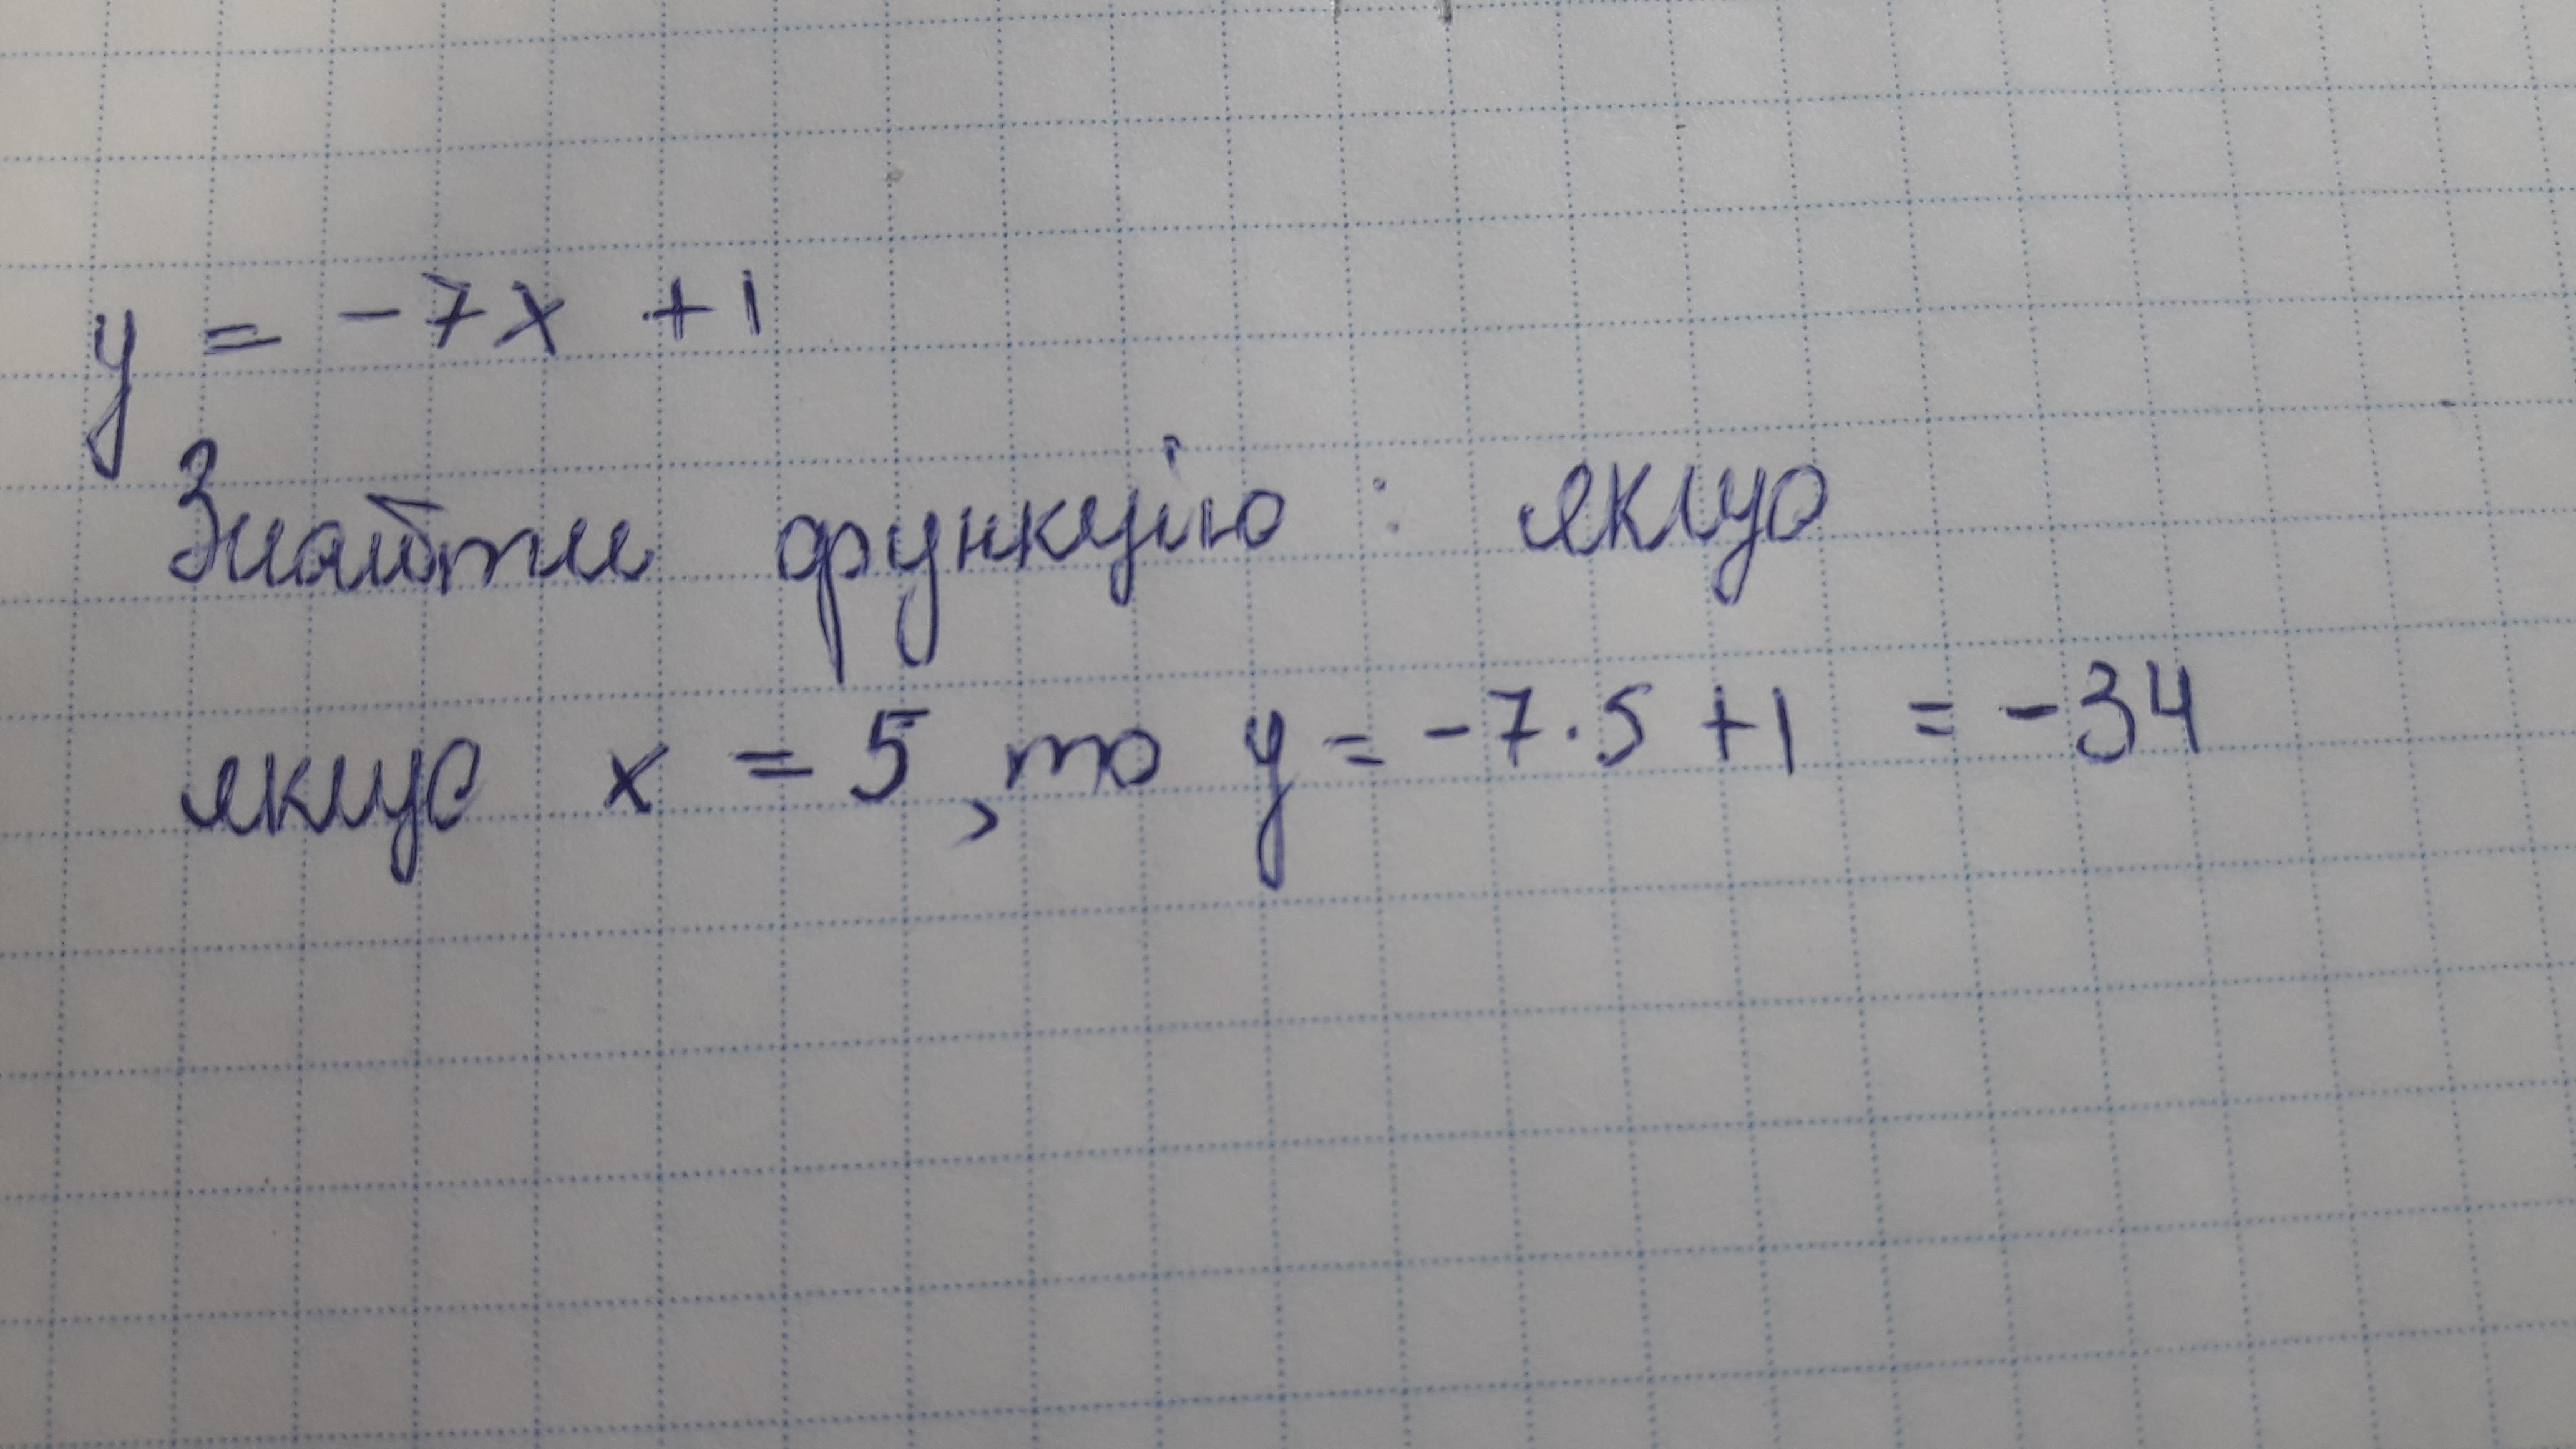 y = -7x + 1
Знайти функцію : якщо
якщо x = 5, то y = -7·5 + 1 = -34